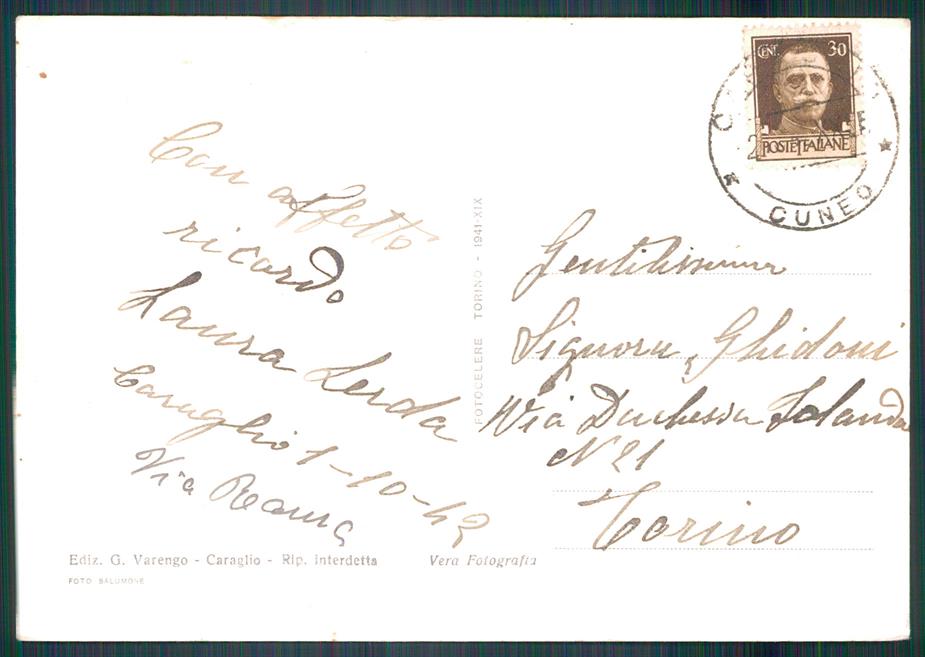 CENT. 30
POSTE ITALIANE
CUNEO
Con affetto
ricordo
Laura Lerda
Caraglio 1-10-42
Via Roma
FOTOCELERE TORINO - 1941-XIX
Gentilissima
Signora Ghidoni
Via Duchessa Jolanda
N 21
Torino
Ediz. G. Varengo - Caraglio - Rip. interdetta
Vera Fotografia
FOTO BALUMONE